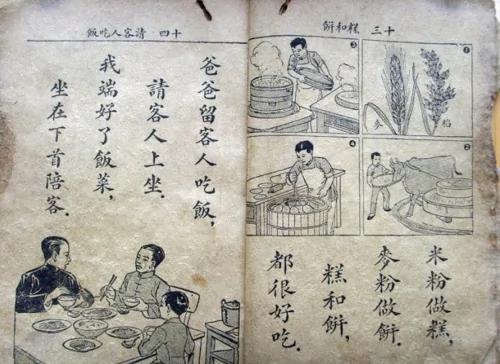 十三 糕和餅
①
稻
麥
②
③
④
米粉做糕，
麥粉做餅．
糕和餅，
都很好吃．
十四 請客人吃飯
爸爸留客人吃飯，
請客人上坐．
我端好了飯菜，
坐在下首陪客．